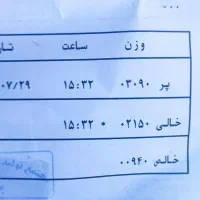 ...
وزن ساعت تار
پر ۰۳۰۹۰ ۱۵:۳۲ ۰۷/۲۹
خالی ۰۲۱۵۰ * ۱۵:۳۲
خالص ۰۰۹۴۰